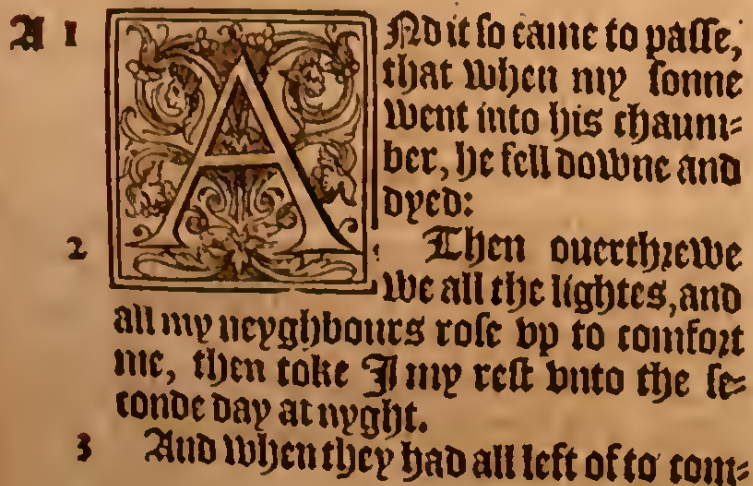 A 1 ANd it ſo came to paſſe,
that when my ſonne
went into his chaum⸗
ber, he fell downe and
dyed:
2 Then ouerthꝛewe
we all the lightes, and
all my neyghbours roſe vp to comfoꝛt
me, then toke I my reſt vnto the ſe⸗
conde day at nyght.
3 And when they had all left of to com⸗